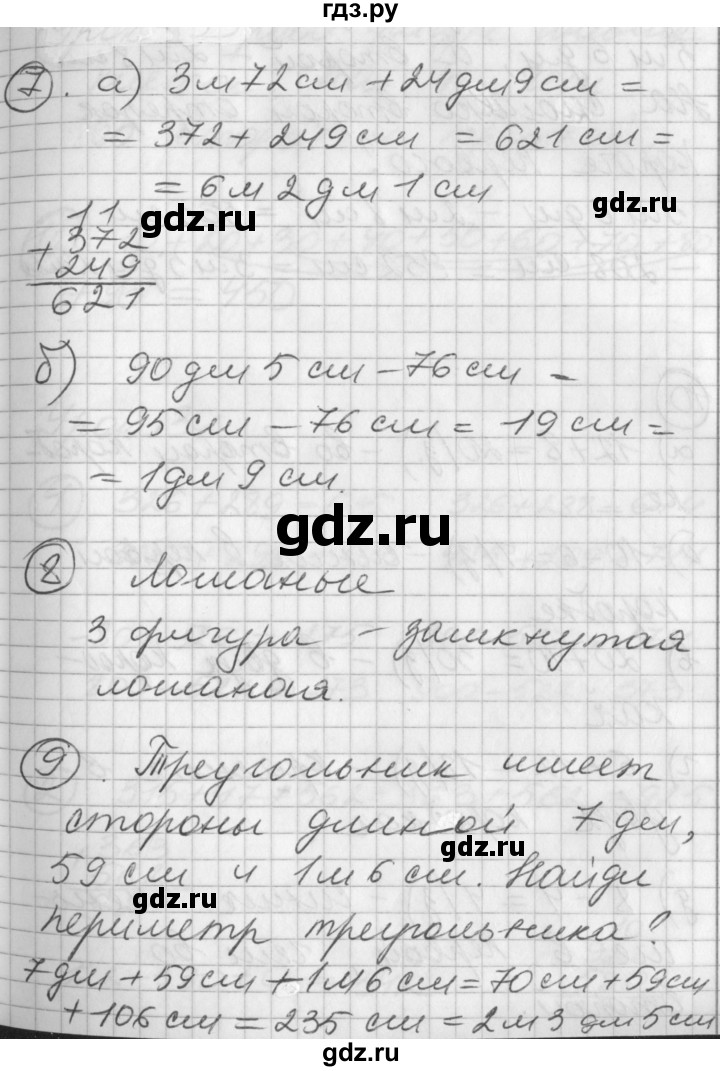 гдз.ру
7. а) 3м72см + 24дм9см =
= 372 + 249см = 621 см =
= 6м 2дм 1см
gdz.ru
gdz.ru
11
+372
249
621
б) 90дм 5см - 76см -
= 95см - 76см = 19см =
= 1дм 9см.
gdz.ru
8 Ломаные
3 фигура - замкнутая
ломаная.
gdz.ru
9. Треугольник имеет
стороны длиной 7дм,
gdz.ru
59см и 1м6см. Найди
gdz.ru
периметр треугольника?
7дм + 59см + 1м6см = 70см + 59см
+ 106см = 235 см = 2м 3дм 5см
gdz.ru
gdz.ru